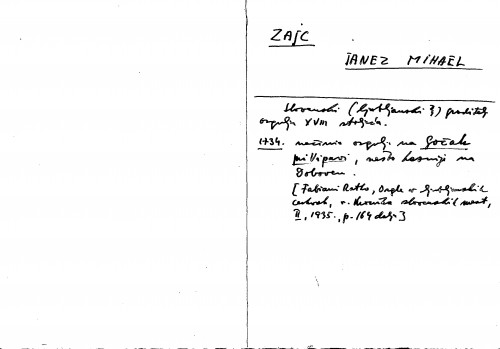 ZAJC
JANEZ MIHAEL
Slovenski (ljubljanski ?) graditelj
orgulja XVIII stoljeća.
1734. načinio orgulje na Gočah
pri Vipavi, nešto kasnije na
Dobovcu.
[Fabiani Ratko, Orgle v ljubljanskih
cerkvah, v. Kronika slovenskih mest,
II, 1935., p. 164 dalje]